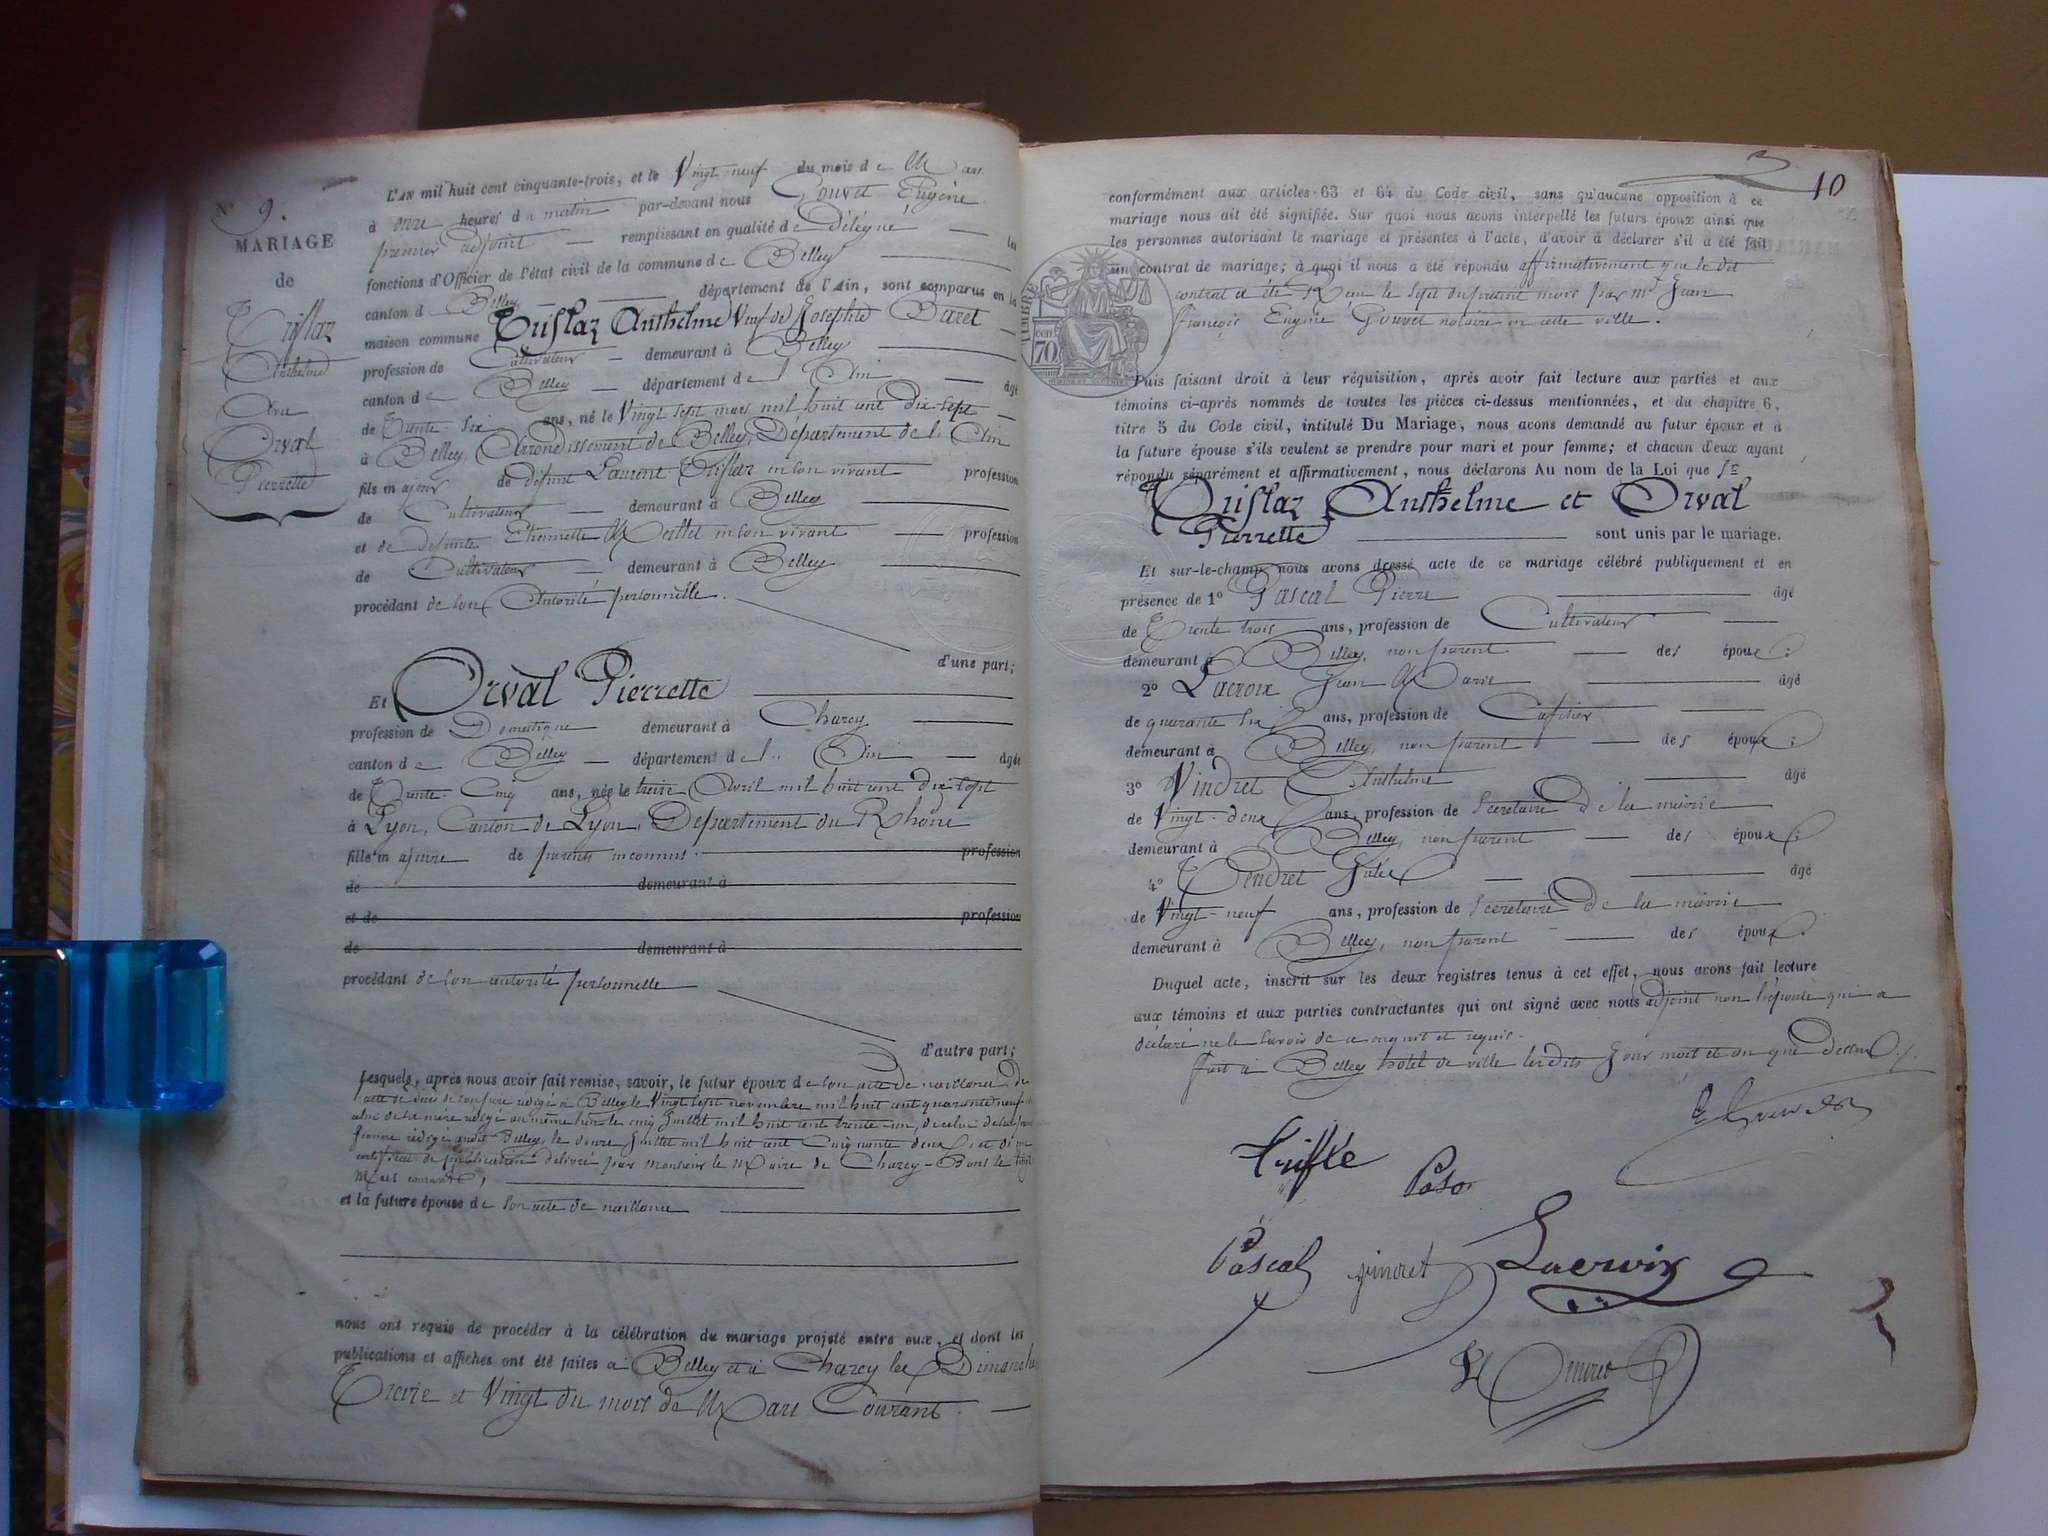 N° 9.
MARIAGE
de
Triflaz
Anthelme
Avec
Orval
Pierrette
L'AN mil huit cent cinquante-trois, et le Vingt-neuf du mois de Mars
à onze heures du matin par-devant nous Gouvet Eugène
premier adjoint remplissant en qualité de Délégué les
fonctions d'Officier de l'état civil de la commune de Belley
canton de Belley département de l'Ain, sont comparus en la
maison commune Triflaz Anthelme Veuf de Josephte Baret
profession de Cultivateur demeurant à Belley
canton de Belley département de l'Ain âgé
de Trente six ans, né le Vingt sept mars mil huit cent dix sept
à Belley, Arrondissement de Belley, Département de l'Ain
fils majeur de défunt Laurent Triflaz en son vivant profession
de Cultivateur demeurant à Belley
et de défunte Etiennette en son vivant profession
de Cultivateur demeurant à Belley
procédant de son Autorité personnelle.
d'une part;
Et Orval Pierrette
profession de Domestique demeurant à Charcy
canton de Belley département de l'Ain âgée
de Trente-Cinq ans, née le treize Avril mil huit cent dix sept
à Lyon, Canton de Lyon, Département du Rhône
fille majeure de parents inconnus. profession
de demeurant à
et de profession
de demeurant à
procédant de son autorité personnelle
d'autre part;
Lesquels, après nous avoir fait remise, savoir, le futur époux de son acte de naissance, de
acte de décès de son père rédigé à Belley le Vingt sept novembre mil huit cent quarante neuf
celui de sa mère rédigé au même lieu le cinq Juillet mil huit cent trente-un, de celui de sa
femme rédigé audit Belley, le douze Juillet mil huit cent Cinquante deux et d'un
certificat de publication délivré par monsieur le Maire de Charcy-Bons le
Mars courant,
et la future épouse de son acte de naissance
nous ont requis de procéder à la célébration du mariage projeté entre eux, et dont les
publications et affiches ont été faites à Belley et à Charcy les Dimanches
Treize et Vingt du mois de Mars Courant.
10
conformément aux articles 63 et 64 du Code civil, sans qu'aucune opposition à ce
mariage nous ait été signifiée. Sur quoi nous avons interpellé les futurs époux ainsi que
les personnes autorisant le mariage et présentes à l'acte, d'avoir à déclarer s'il a été fait
un contrat de mariage; à quoi il nous a été répondu affirmativement que le dit
contrat a été Reçu le sept du présent mois par Me Jean
françois Eugène Gouvet notaire en cette ville.
TIMBRE
cen
70
Puis faisant droit à leur réquisition, après avoir fait lecture aux parties et aux
témoins ci-après nommés de toutes les pièces ci-dessus mentionnées, et du chapitre 6,
titre 5 du Code civil, intitulé Du Mariage, nous avons demandé au futur époux et à
la future épouse s'ils veulent se prendre pour mari et pour femme; et chacun d'eux ayant
répondu séparément et affirmativement, nous déclarons Au nom de la Loi que
Triflaz Anthelme et Orval
Pierrette sont unis par le mariage.
Et sur-le-champ nous avons dressé acte de ce mariage célébré publiquement et en
présence de 1° Pascal Pierre âgé
de Trente trois ans, profession de Cultivateur
demeurant à Belley, non parent des époux;
2° Lacroix Jean Marie âgé
de quarante six ans, profession de Cafetier
demeurant à Belley, non parent des époux;
3° Vindret Anthelme âgé
de Vingt-deux ans, profession de Secretaire de la mairie
demeurant à Belley, non parent des époux;
4° Tendret âgé
de Vingt-neuf ans, profession de Secretaire de la mairie
demeurant à Belley, non parent des époux.
Duquel acte, inscrit sur les deux registres tenus à cet effet, nous avons fait lecture
aux témoins et aux parties contractantes qui ont signé avec nous adjoint non l'épouse qui a
déclaré ne le savoir de ce enquis et requis.
fait à Belley hôtel de ville les dits Jour mois et an que dessus.
Pascal
Vindret
Lacroix